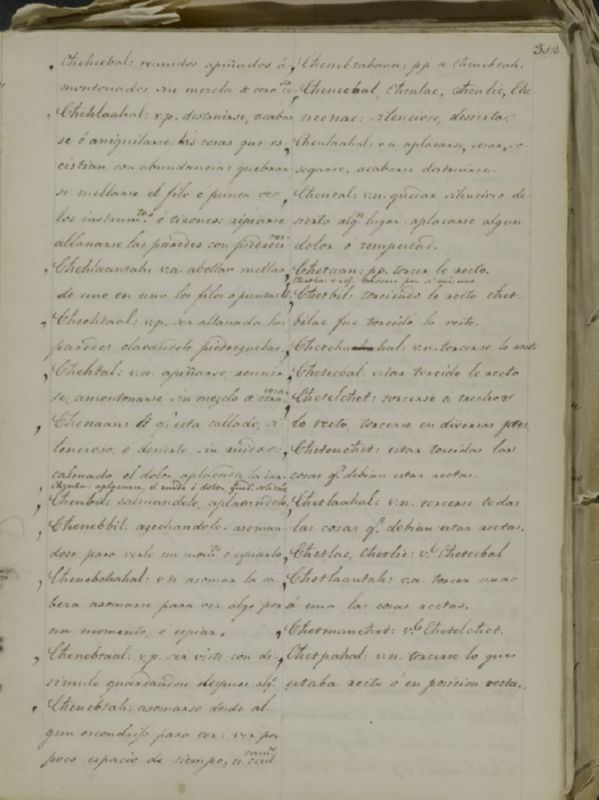 312
Chehecbal: reunidos apiñados ó
montonados sin mezcla de otra
Chehlaahal: v.p. destruirse, acabar
se ó aniquilarse las cosas que ec-
sistian con abundancia: quebrar
se mellarse el filo o punta de
los instrum.tos ó tirones: ripiarse
allanarse las paredes con piedreci
Chehlaantah: v.a. abollar mellar
de uno en uno los filos ó puntas
Chehtaal: v.p. ser allanada las
paredes clavandole piedrezuelas.
Chehtal: v.n. apiñarse, reunir
se, amontonarse sin mezcla de otra cosa
Chenaan: lo q.e esta callado, si-
lencioso, o desierto sin ruido:
calmado el dolor, aplacada la ira
Chenbil: calmandolo, aplacandolo
Chenebbil: asechandolo, asoman
dose para verlo un mom.to o espiarlo
Chenebchahal: v.n. asomar la ca
beza asomarse para ver algo por
un momento, ó espiar.
Chenebtaal: v.p. ser visto con di-
simulo guardandose despues
Chenebtah: asomarse desde al-
gun escondrijo para ver: ver por
poco espacio de tiempo,
Chenebtahaan: pp. de Chenebtah.
Chenecbal, Chenlac, Chenlic, Che
necnac: silencioso, desierto.
Chenlaahal: v.n. aplacarse, cesar, so-
segarse, acabarse destruirse.
Chental: v.n. quedar silencioso de-
sierto alg.n lugar. aplacarse algun
dolor o tempestad.
Chetaan: pp. torcer lo recto.
Chetbil: torciendo lo recto chet
bilac fue torcido lo recto.
Chetchahal: v.n. torcerse lo recto
Chetecbal: estar torcido lo recto
Chetelchet: torcerse a trechos
lo recto, torcerse en diversas ptes
Chetenchet: estar torcidas las
cosas q.e debian estar rectas.
Chetlaahal: v.n. torcerse todas
las cosas q.e debian estar rectas.
Chetlac, Chetlic: v.e Chetecbal
Chetlaantah: v.a. torcer una
á una las cosas rectas.
Chetmanchet: v.e Chetelchet.
Chetpahal: v.n. torcerse lo que
estaba recto ó en posicion recta.